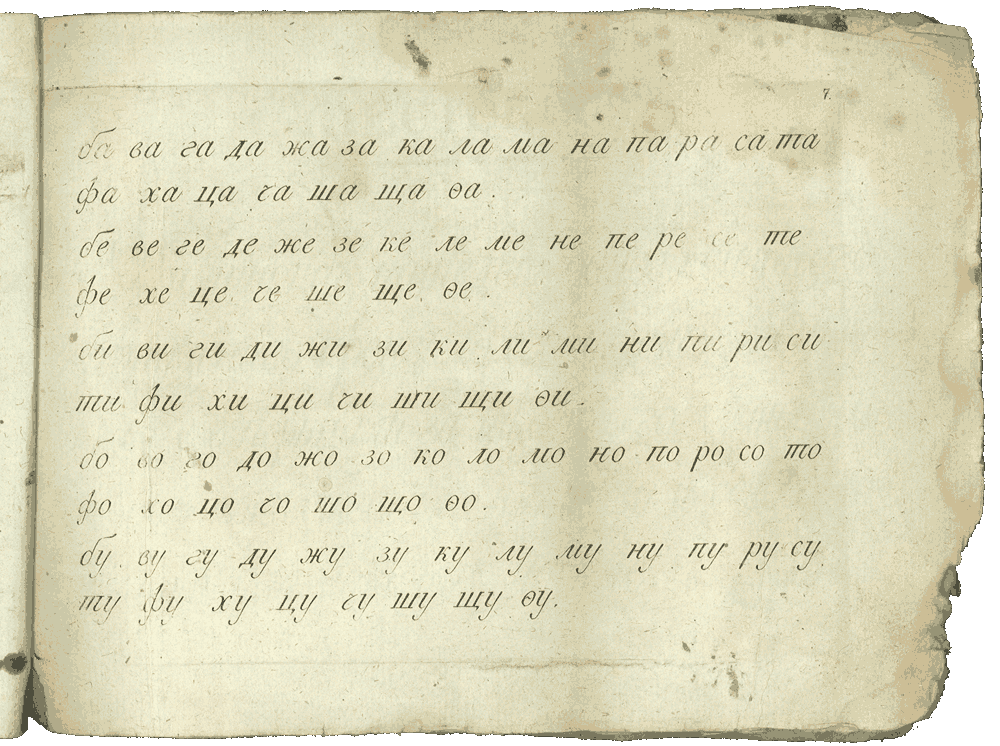 7.
ба ва га да жа за ка ла ма на па ра са та
фа ха ца ча ша ща ѳа.
бе ве ге де же зе ке ле ме не пе ре се те
фе хе це че ше ще ѳе.
би ви ги ди жи зи ки ли ми ни пи ри си
ти фи хи ци чи ши щи ѳи.
бо во го до жо зо ко ло мо но по ро со то
фо хо цо чо шо що ѳо.
бу ву гу ду жу зу ку лу му ну пу ру су
ту фу ху цу чу шу щу ѳу.